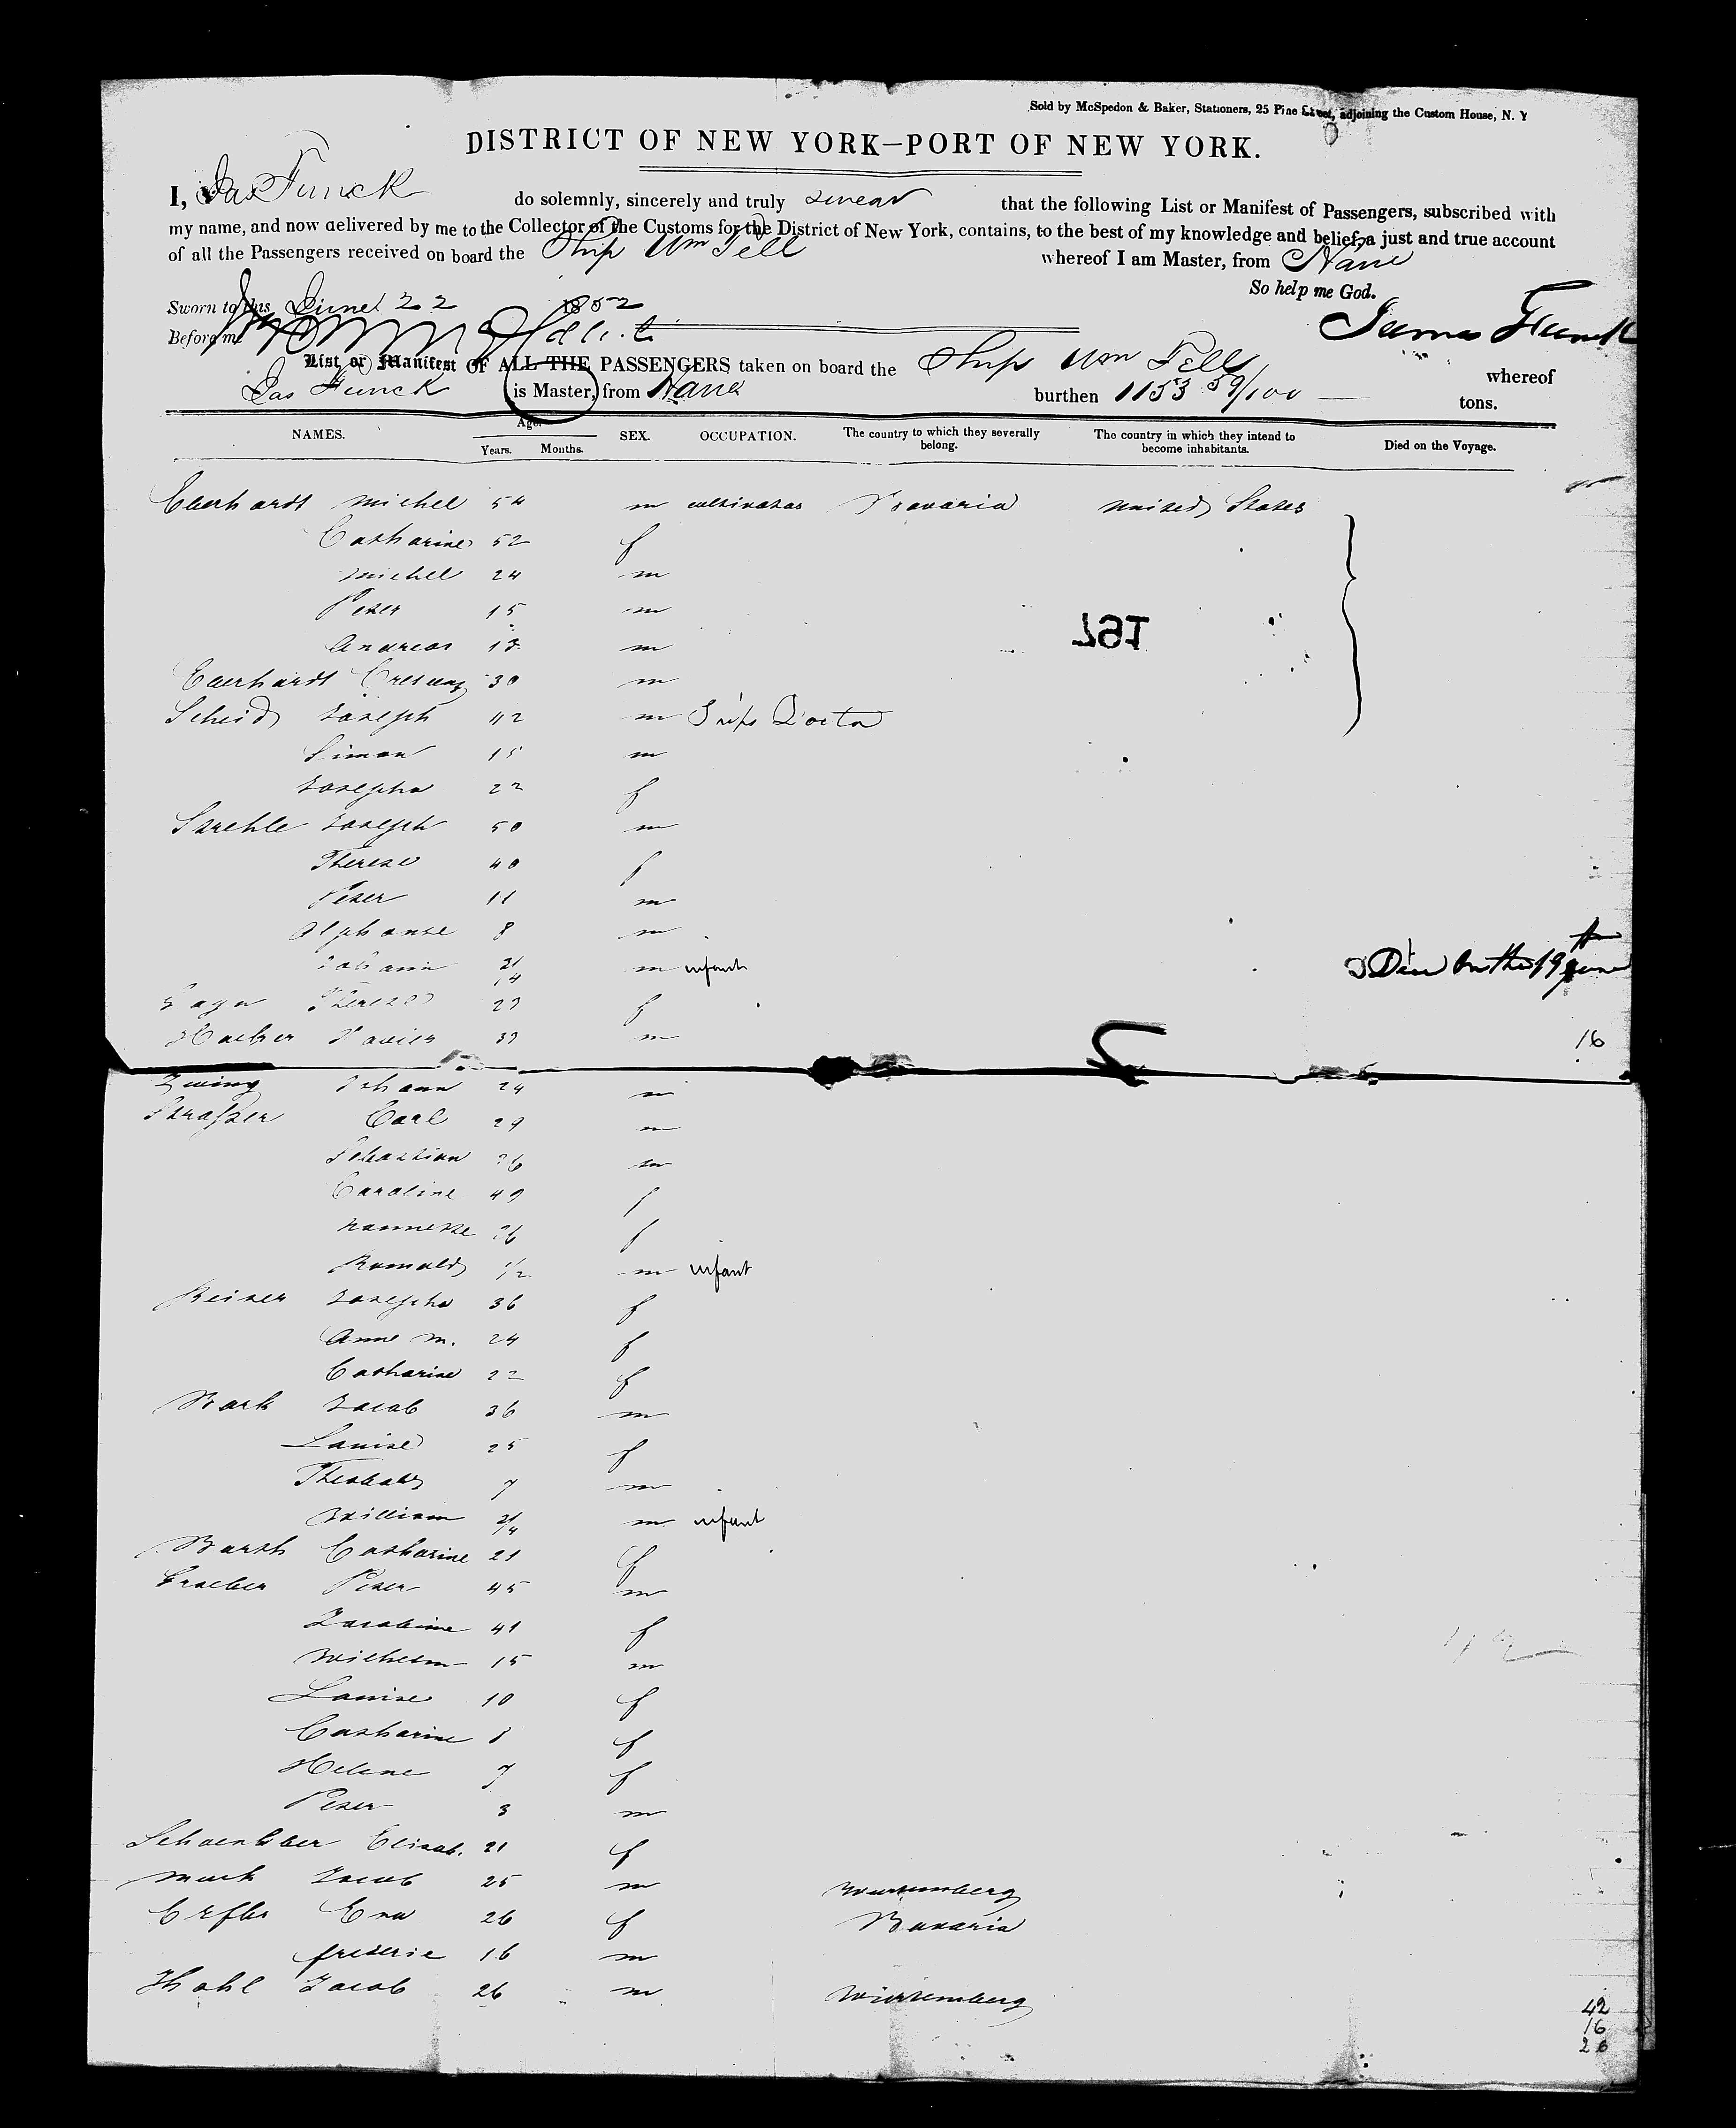 Sold by McSpedon & Baker, Stationers, 25 Pine Street, adjoining the Custom House, N. Y
DISTRICT OF NEW YORK—PORT OF NEW YORK.
I, Jas Funck do solemnly, sincerely and truly swear that the following List or Manifest of Passengers, subscribed with
my name, and now delivered by me to the Collector of the Customs for the District of New York, contains, to the best of my knowledge and belief, a just and true account
of all the Passengers received on board the Ship Wm Tell whereof I am Master, from Havre
So help me God.
Sworn to this June 22 1852
James Funck
Before me
List or Manifest OF ALL THE PASSENGERS taken on board the Ship Wm Tell whereof
Jas Funck is Master, from Havre burthen 1153 59/100 tons.
NAMES. Age. Years. Months. SEX. OCCUPATION. The country to which they severally belong. The country in which they intend to become inhabitants. Died on the Voyage.
Eberhardt Michel 54 m cultivator Bavaria United States
Catharine 52 f
Michel 24 m
Peter 15 m
Andreas 13 m
167
Eberhardt 30 m
Scheid Joseph 42 m Ships Doctor
Simon 15 m
Josepha 22 f
Strehle Joseph 50 m
Therese 40 f
Peter 11 m
Alphonse 8 m
Johann 3/4 m infant Died on the 19th June
Therese 29 f
Xavier 39 m
16
Zwing Johann 24 m
Strasser Carl 29 m
Sebastian 26 m
Caroline 49 f
Nannette 26 f
Romuald 1/2 m infant
Reiser Josepha 36 f
Anne M. 24 f
Catharine 22 f
Bark Jacob 36 m
Louise 25 f
Theobald 7 m
William 3/4 m infant
Barth Catharine 21 f
Graeber Peter 45 m
Jacobine 41 f
Wilhelm 15 m
Louise 10 f
Catharine 8 f
Helene 7 f
Peter 3 m
Elisab. 21 f
Mark Jacob 25 m Wurtemberg
Eva 26 f Bavaria
frederic 16 m
Jacob 26 m Wurtemberg
42
16
26